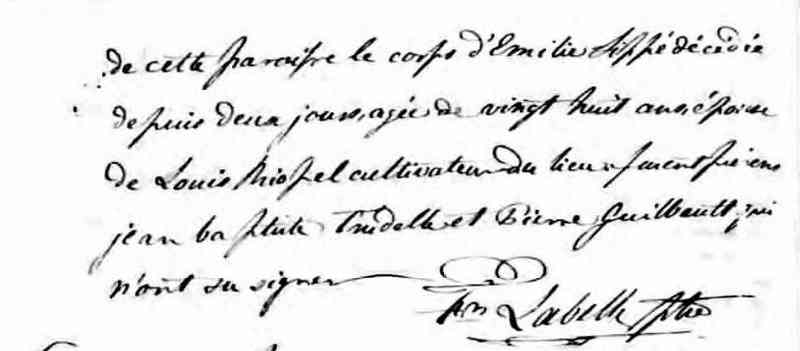 de cette paroisse le corps d'Emilie Sippé décédée
depuis deux jours, agée de vingt huit ans, épouse
de Louis Riopel cultivateur du lieu, furent présens
jean baptiste Trudelle et Pierre Guilbault qui
n'ont su signer
Labelle ptre